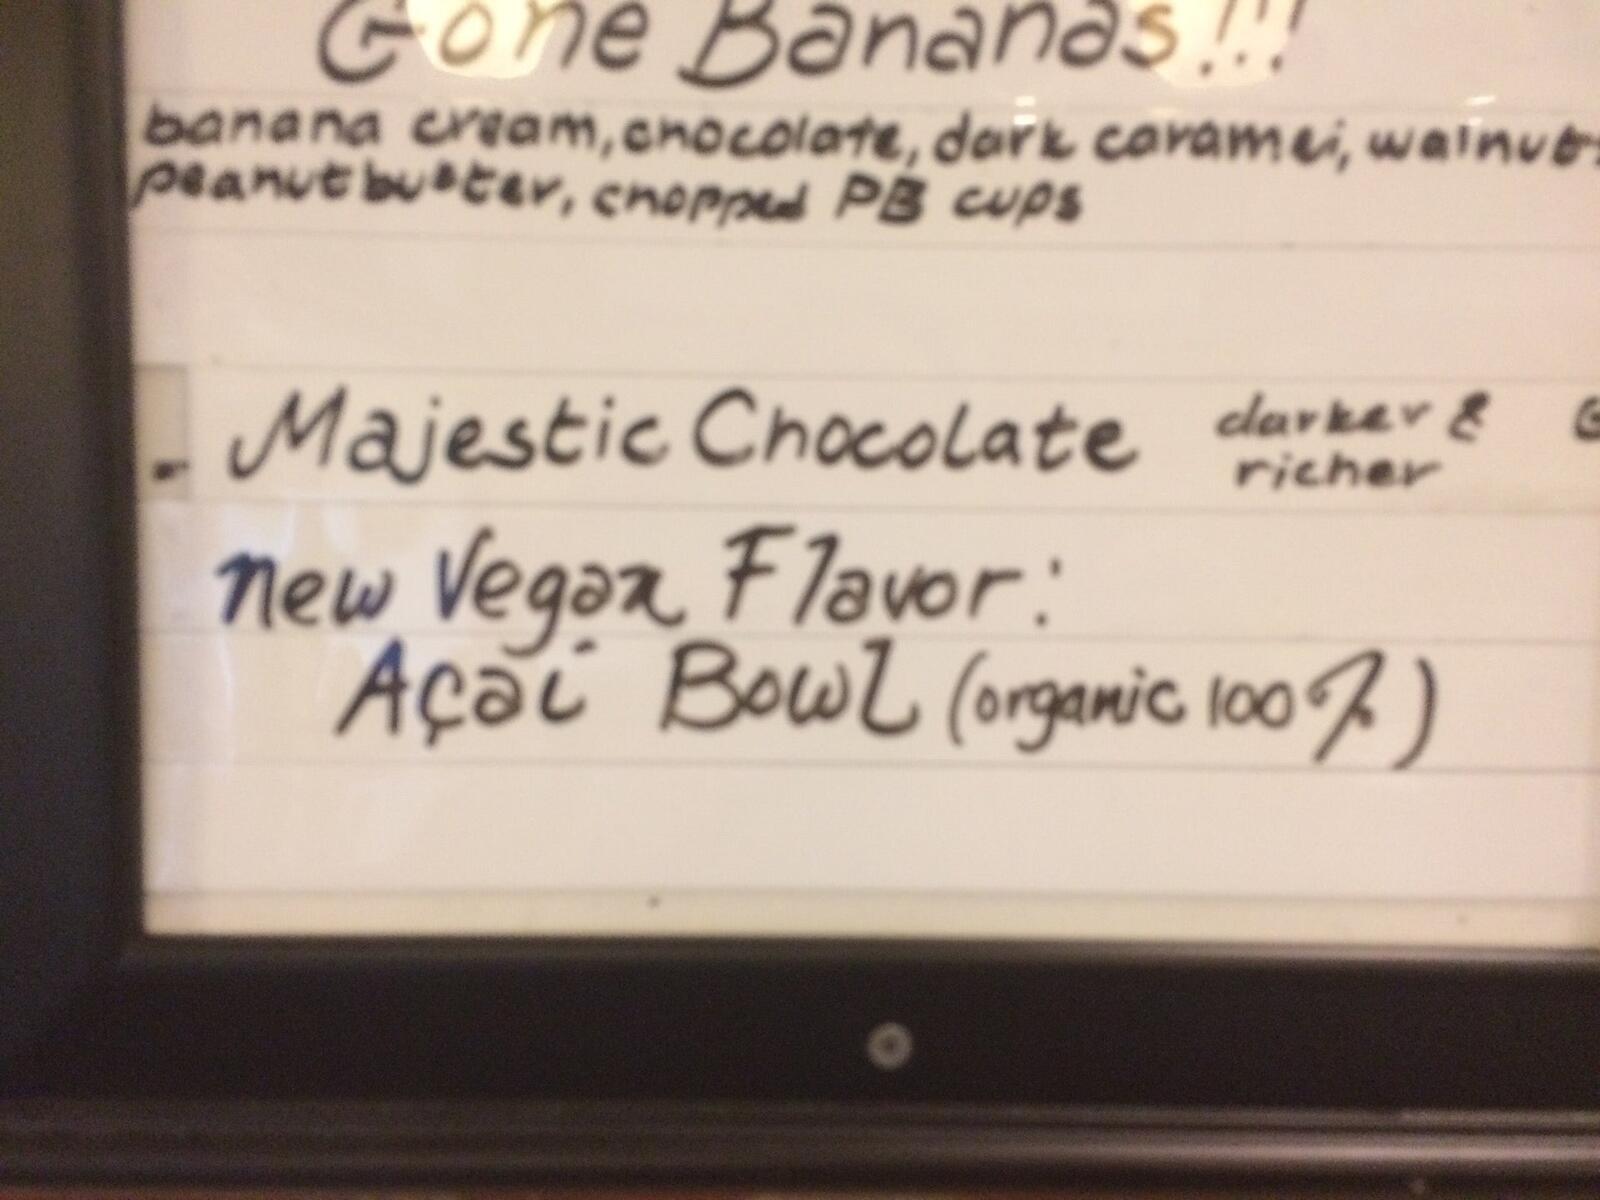 Gone Bananas!!!
banana cream, chocolate, dark caramel, walnuts
peanutbutter, chopped PB cups
Majestic Chocolate darker &
richer
new Vegan Flavor:
Açaí Bowl (organic 100%)